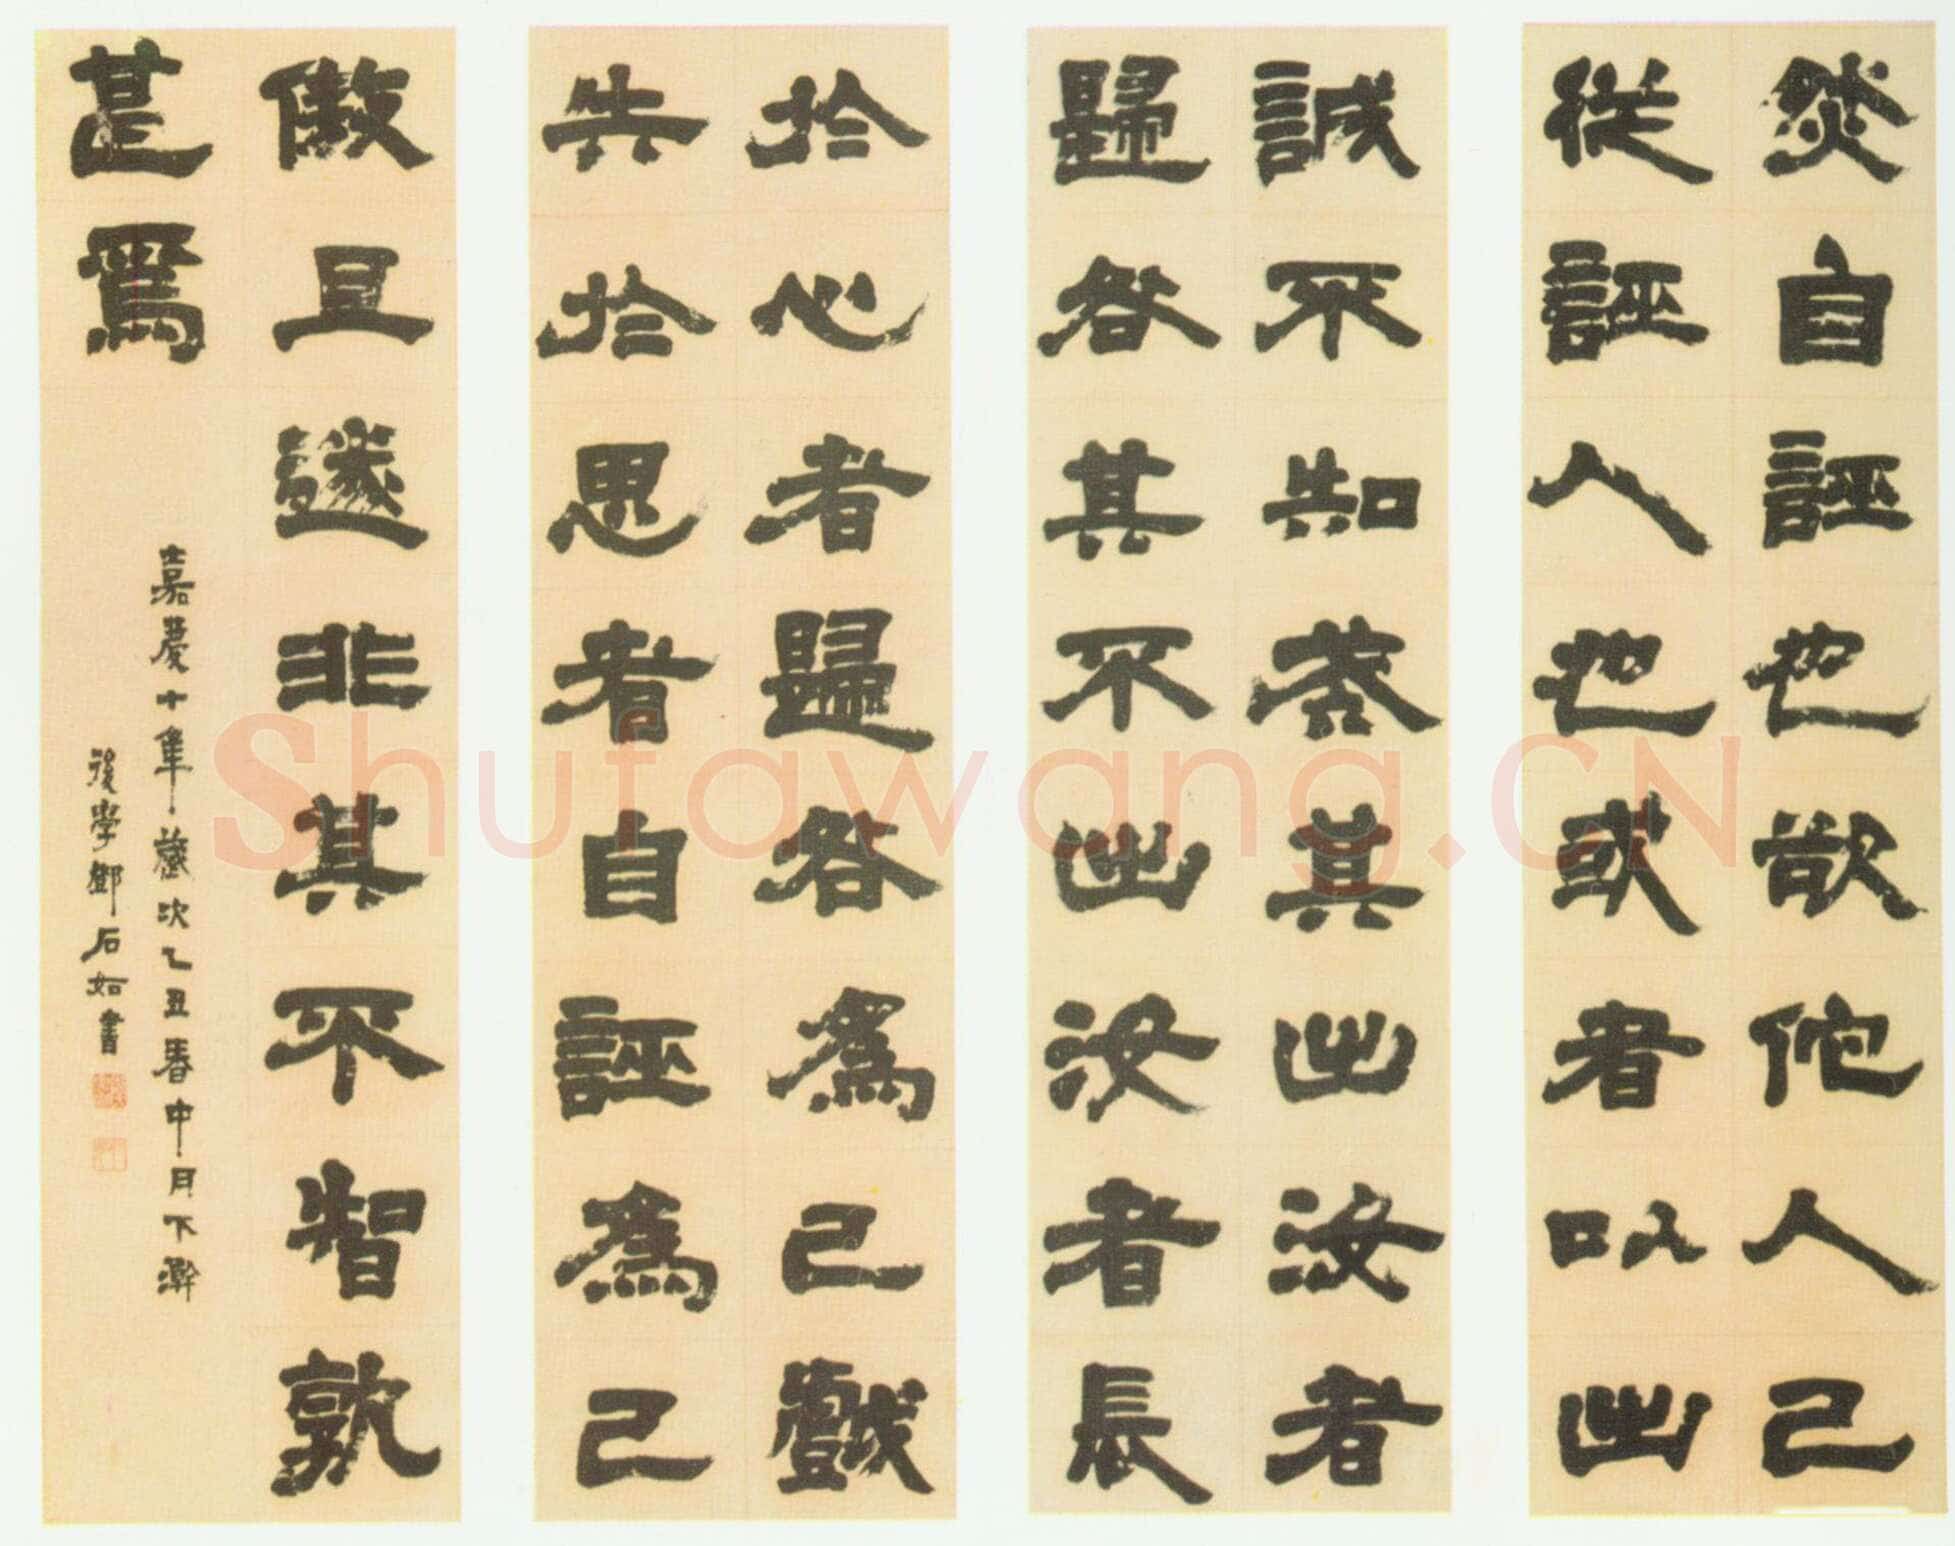 然自誣也欲佗人己
從誣人也或者以出
誠不知戒其出汝者
歸咎其不出汝者長
於心者歸咎為己戲
失於思者自誣為己
傲且遂非其不智孰
甚焉
嘉慶十年歲次乙丑春中月下澣
後學鄧石如書
Shufawang.CN